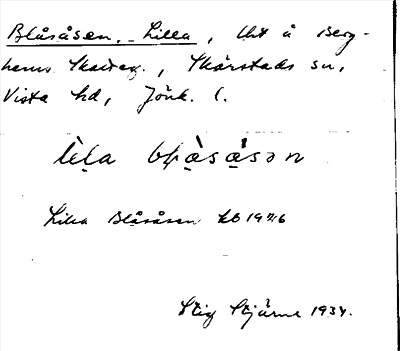 Blåsåsen, Lilla, lht å Berg-
hems Skatteg., Skärstads sn,
Vista hd, Jönk. l.
lèla bḷåsåsən
Lilla Blåsåsen kb 1926
Stig Stjärne 1934.